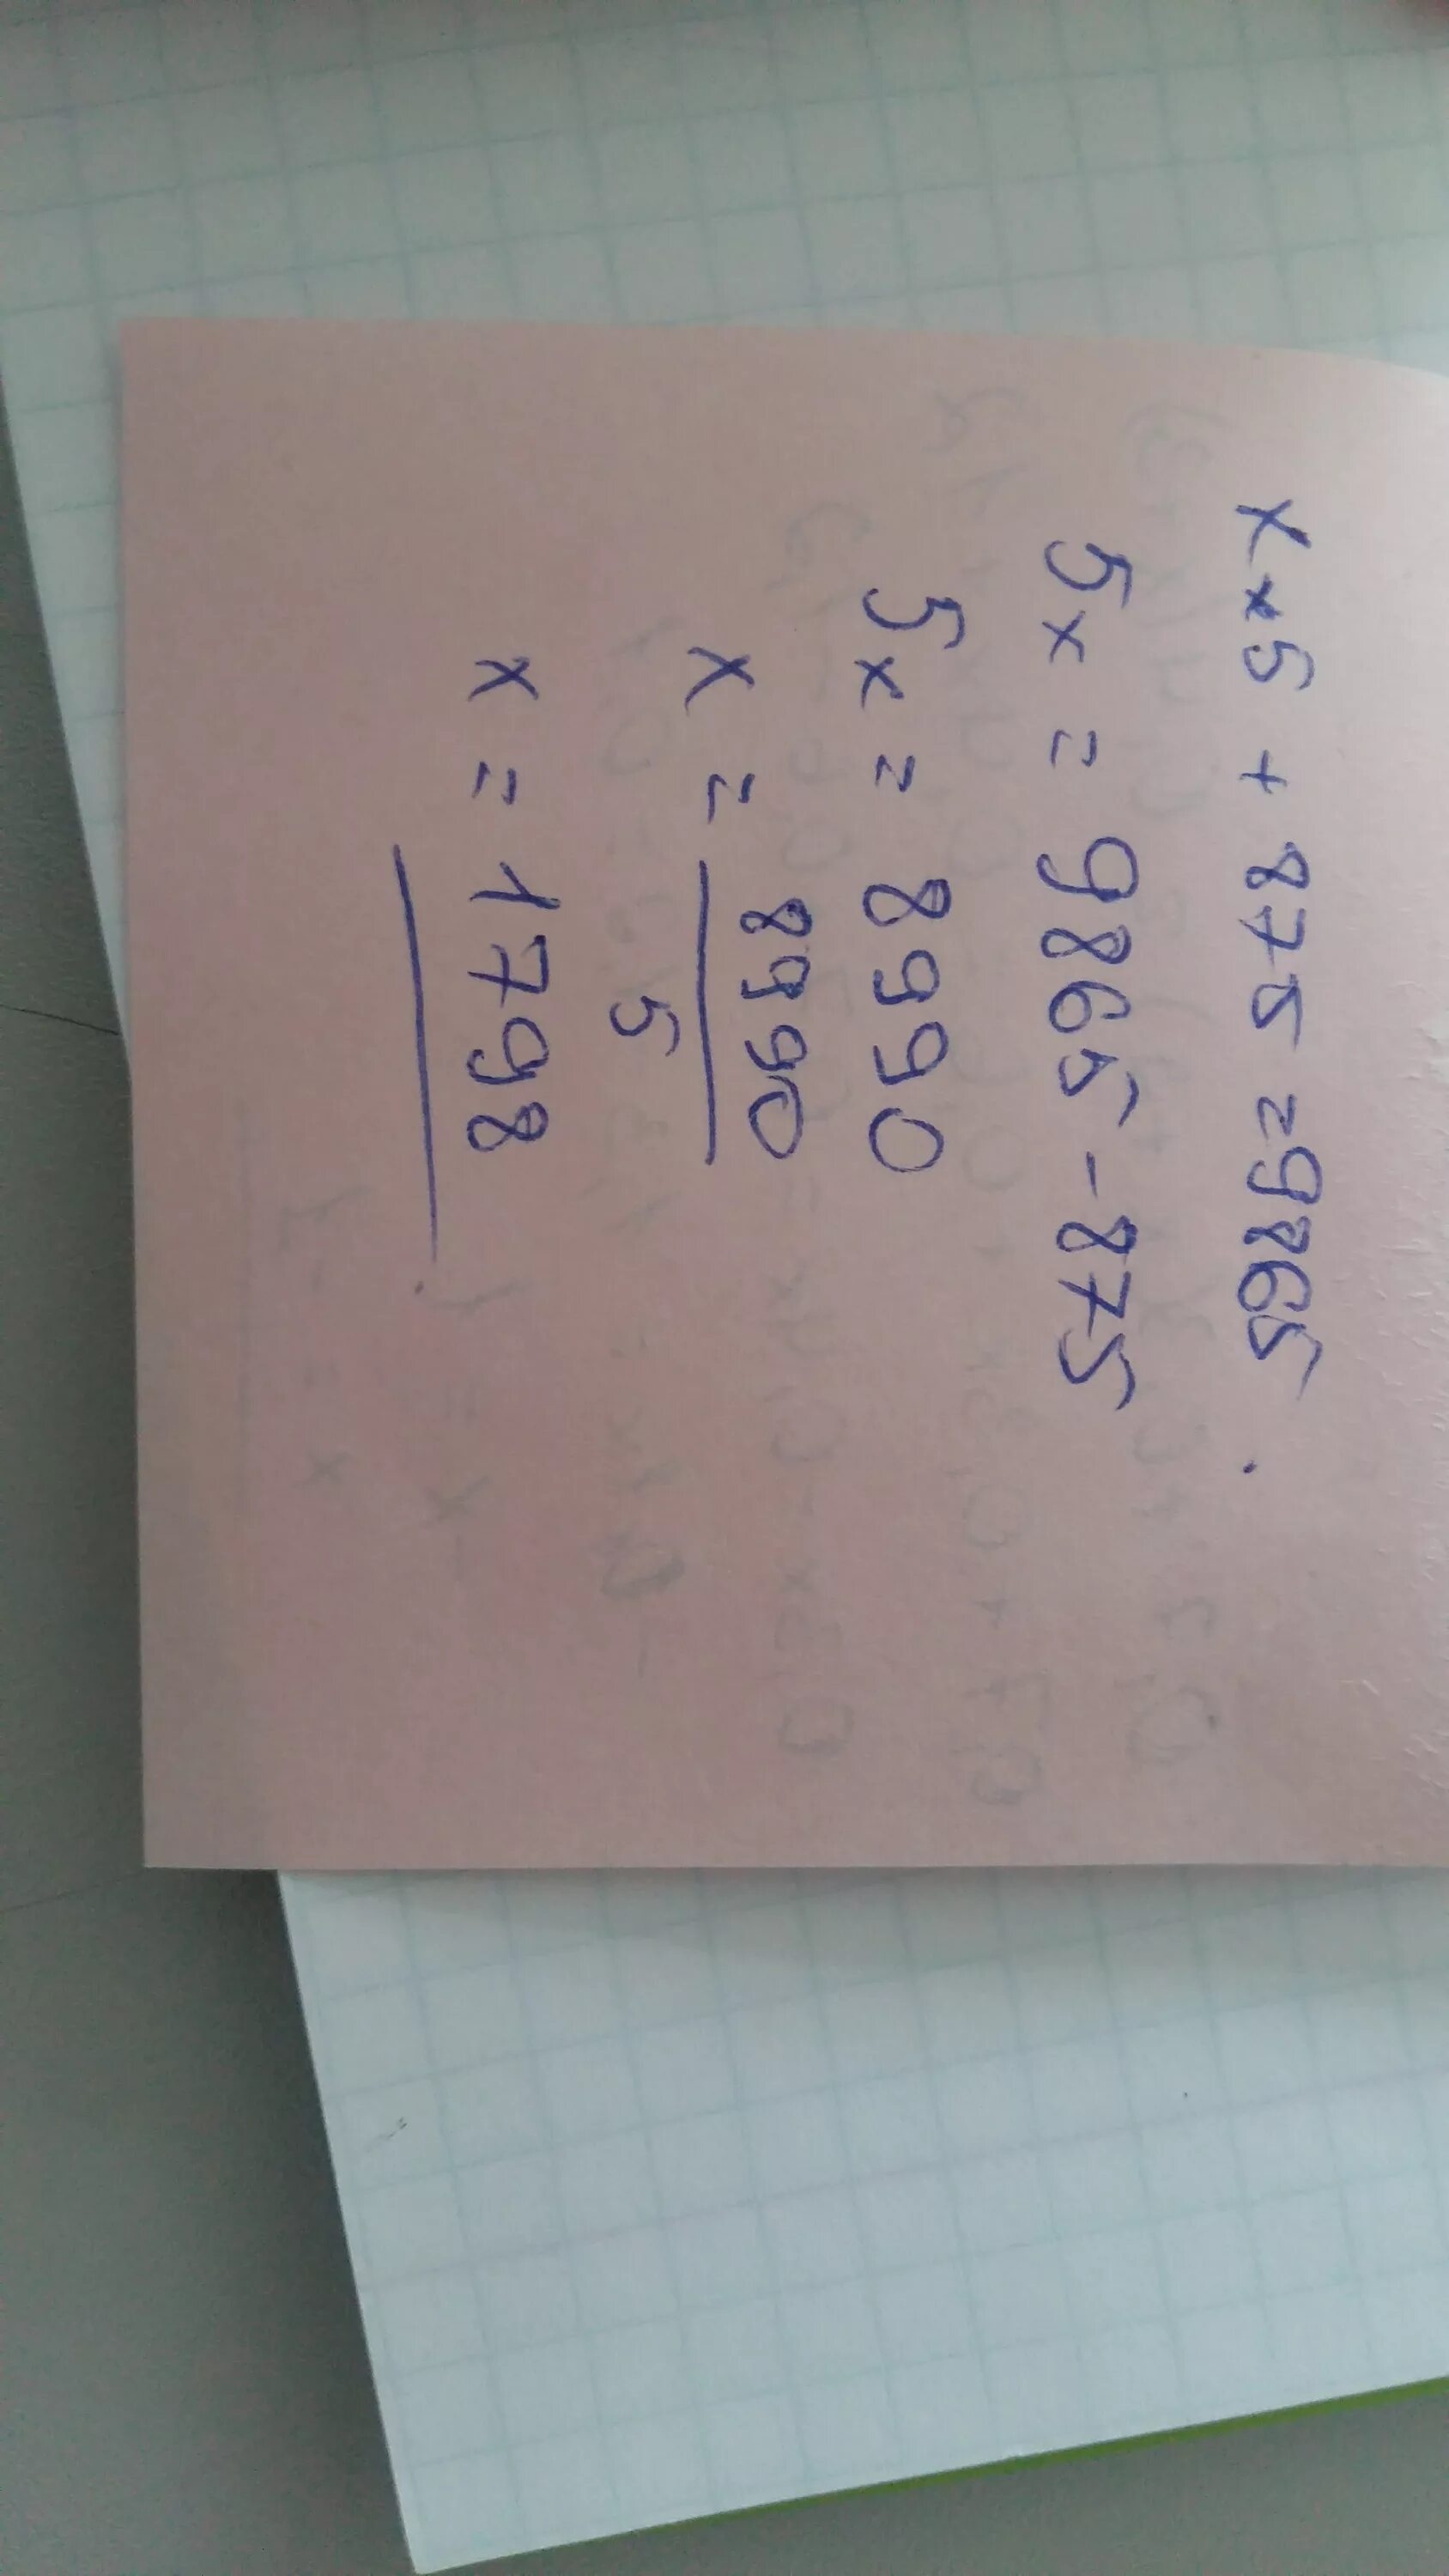 x × 5 + 875 = 9865
5x = 9865 - 875
5x = 8990
x = 8990
5
x = 1798